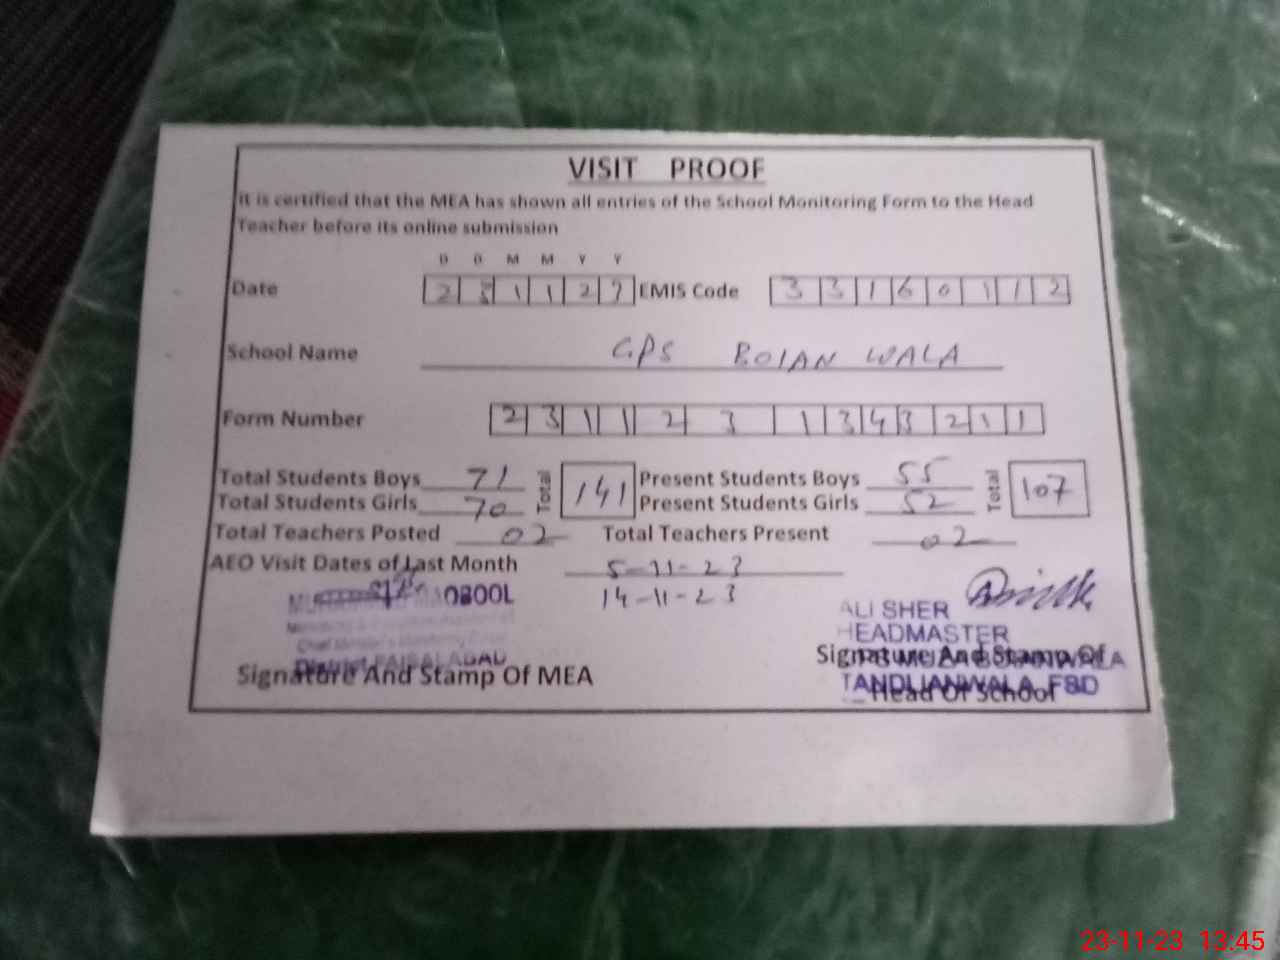 VISIT PROOF
It is certified that the MEA has shown all entries of the School Monitoring Form to the Head
Teacher before its online submission
D D M M Y Y
Date 2 3 1 1 2 3 EMIS Code 3 3 1 6 0 1 1 2
School Name GPS BOIAN WALA
Form Number 2 3 1 1 2 3 1 3 4 3 2 1 1
Total Students Boys 71 Total 141 Present Students Boys 55 Total 107
Total Students Girls 70 Present Students Girls 52
Total Teachers Posted 02 Total Teachers Present 02
AEO Visit Dates of Last Month 5-11-23
14-11-23
ALI SHER
HEADMASTER
District FAISALABAD
Signature And Stamp Of MEA
Signature And Stamp Of
TANDLIANWALA FSD
Head Of School
23-11-23 13:45